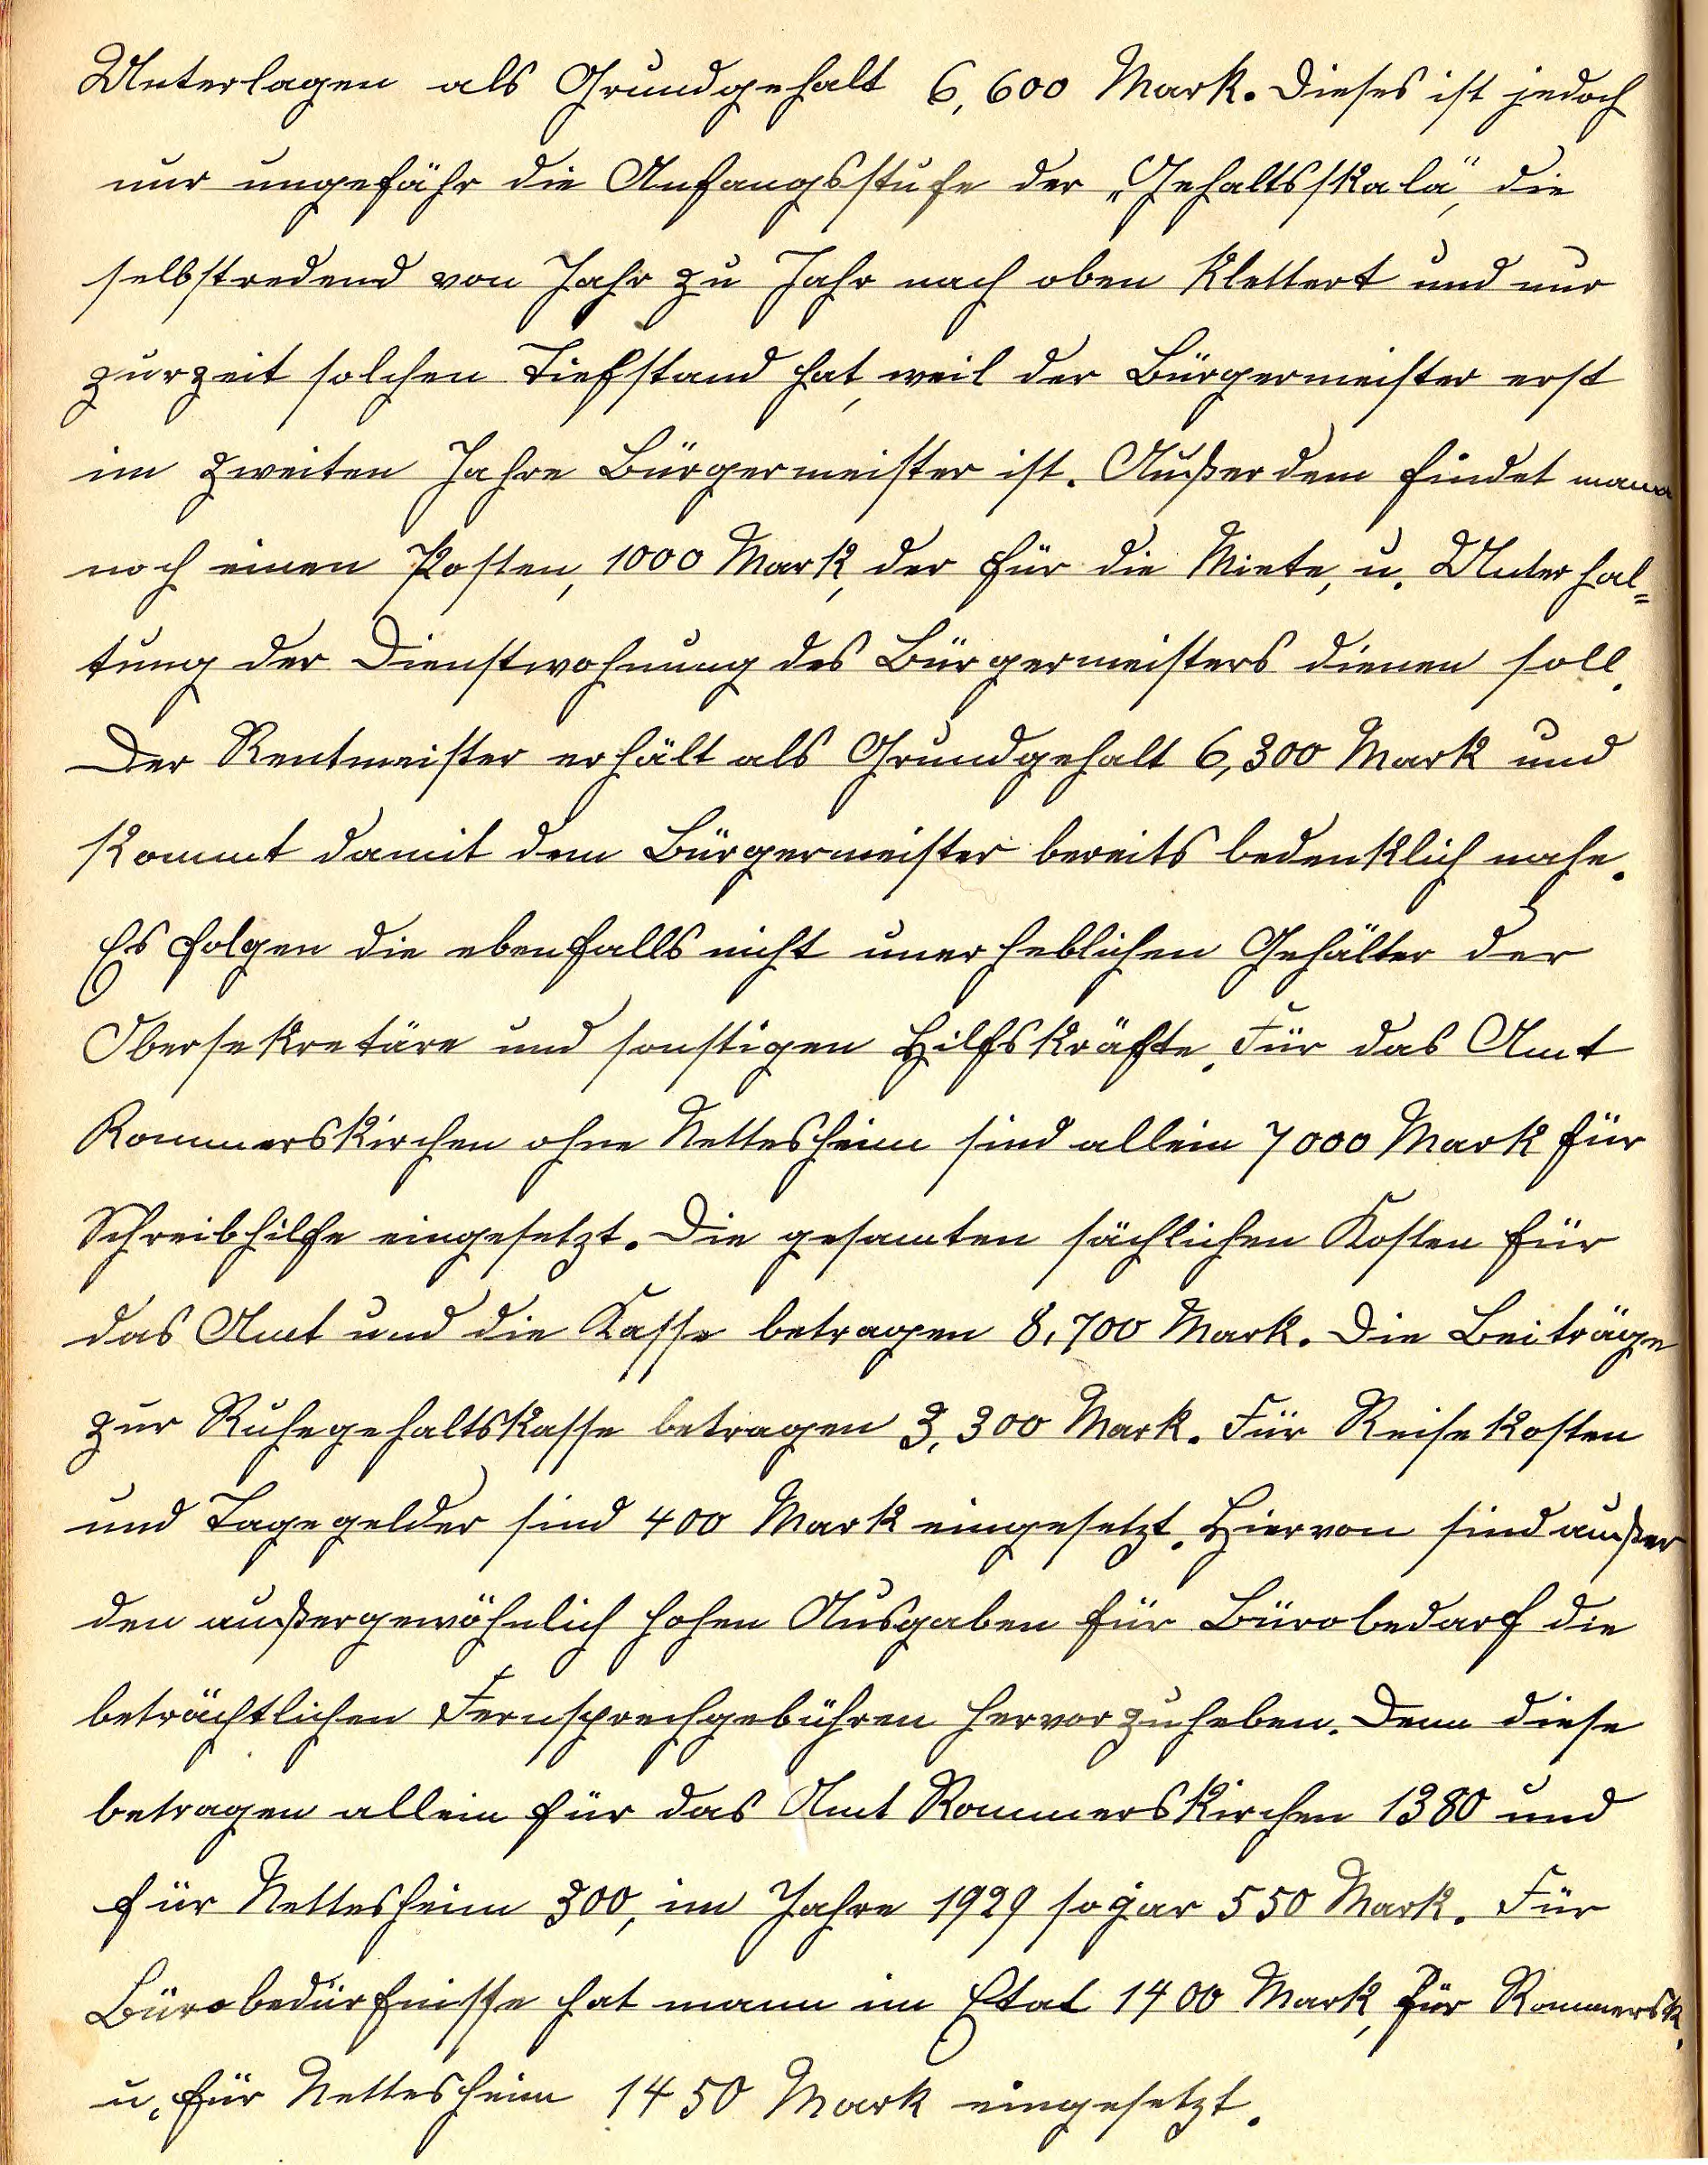 Unterlagen als Grundgehalt 6,600 Mark. Dieses ist jedoch
nur ungefähr die Anfangsstufe der „Gehaltsskala", die
selbstredend von Jahr zu Jahr nach oben klettert und nur
zurzeit solchen Tiefstand hat, weil der Bürgermeister erst
im zweiten Jahre Bürgermeister ist. Außerdem findet mann
noch einen Posten, 1000 Mark, der für die Miete, u. Unterhal=
tung der Dienstwohnung des Bürgermeisters dienen soll.
Der Rentmeister erhält als Grundgehalt 6,300 Mark und
kommt damit dem Bürgermeister bereits bedenklich nahe.
Es folgen die ebenfalls nicht unerheblichen Gehälter der
Obersekretäre und sonstigen Hilfskräfte. Für das Amt
Rommerskirchen ohne Nettesheim sind allein 7000 Mark für
Schreibhilfe eingesetzt. Die gesamten sächlichen Kosten für
das Amt und die Kasse betragen 8,700 Mark. Die Beiträge
zur Ruhegehaltskasse betragen 3,300 Mark. Für Reisekosten
und Tagegelder sind 400 Mark eingesetzt. Hiervon sind außer
den außergewöhnlich hohen Ausgaben für Bürobedarf die
beträchtlichen Fernsprechgebühren hervorzuheben. Denn diese
betragen allein für das Amt Rommerskirchen 1380 und
für Nettesheim 300, im Jahre 1929 sogar 550 Mark. Für
Bürobedürfnisse hat mann im Etat 1400 Mark, für Rommersk.
u. für Nettesheim 1450 Mark eingesetzt.